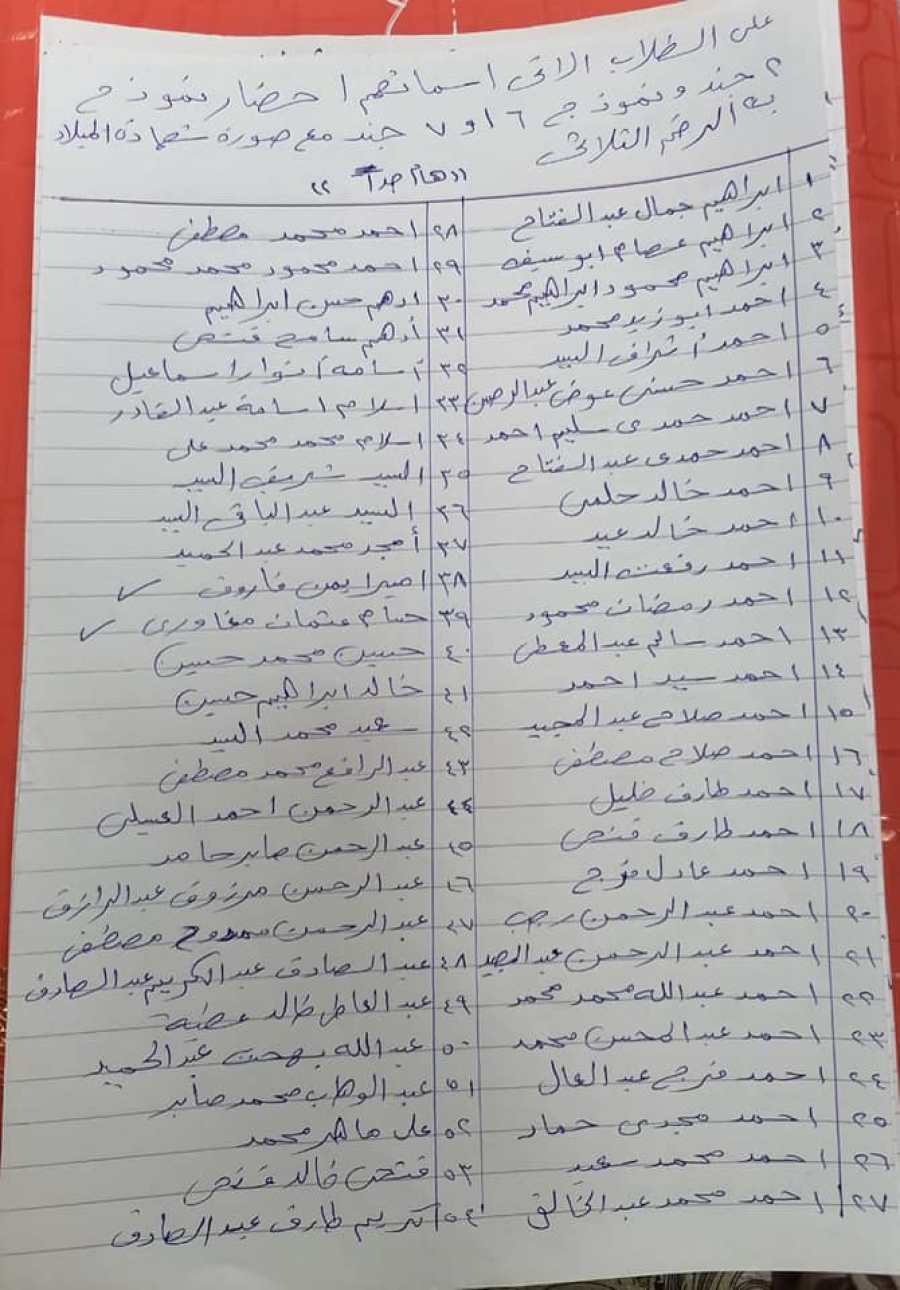 على الطلاب الاتى اسمائهم احضار نموذج
٢ جند ونموذج ٦ او ٧ جند مع صورة شهادة الميلاد
به الرقم الثلاثى
"هام جداً"
١ ابراهيم جمال عبد الفتاح
٢ ابراهيم عصام ابو سيف
٣ ابراهيم محمود ابراهيم محمد
٤ احمد ابو زيد محمد
٥ احمد أشراف السيد
٦ احمد حسنى عوض عبد الرحمن
٧ احمد حمدى سليم احمد
٨ احمد حمدى عبد الفتاح
٩ احمد خالد حلمى
١٠ احمد خالد عيد
١١ احمد رفعت السيد
١٢ احمد رمضان محمود
١٣ احمد سالم عبد المعطى
١٤ احمد سيد احمد
١٥ احمد صلاح عبد المجيد
١٦ احمد صلاح مصطفى
١٧ احمد طارق خليل
١٨ احمد طارق فتحى
١٩ احمد عادل فرج
٢٠ احمد عبد الرحمن رجب
٢١ احمد عبد الرحمن عبد
٢٢ احمد عبد الله محمد محمد
٢٣ احمد عبد المحسن محمد
٢٤ احمد فرج عبد العال
٢٥ احمد مجدى حماد
٢٦ احمد محمد سعيد
٢٧ احمد محمد عبد الخالق
٢٨ احمد محمد مصطفى
٢٩ احمد محمود محمد محمود
٣٠ ادهم حسن ابراهيم
٣١ أدهم سامح فتحى
٣٢ أسامة أنوار اسماعيل
٣٣ اسلام اسامة عبد القادر
٣٤ اسلام محمد محمد على
٣٥ السيد شريف السيد
٣٦ السيد عبد الباقى السيد
٣٧ أمجد محمد عبد الحميد
٣٨ امير ايمن فاروق ✓
٣٩ حسام عثمان مغاورى ✓
٤٠ حسين محمد حسين
٤١ خالد ابراهيم حسين
٤٢ عيد محمد السيد
٤٣ عبد الرافع محمد مصطفى
٤٤ عبد الرحمن احمد العسيلى
٤٥ عبد الرحمن صابر حامد
٤٦ عبد الرحمن مرزوق عبد الرازق
٤٧ عبد الرحمن ممدوح مصطفى
٤٨ عبد الصادق عبد الكريم عبد الصادق
٤٩ عبد العاطى خالد عطية
٥٠ عبد الله بهجت عبد الحميد
٥١ عبد الوهاب محمد صابر
٥٢ على ماهر محمد
٥٣ فتحى خالد فتحى
٥٤ كريم طارق عبد الصادق